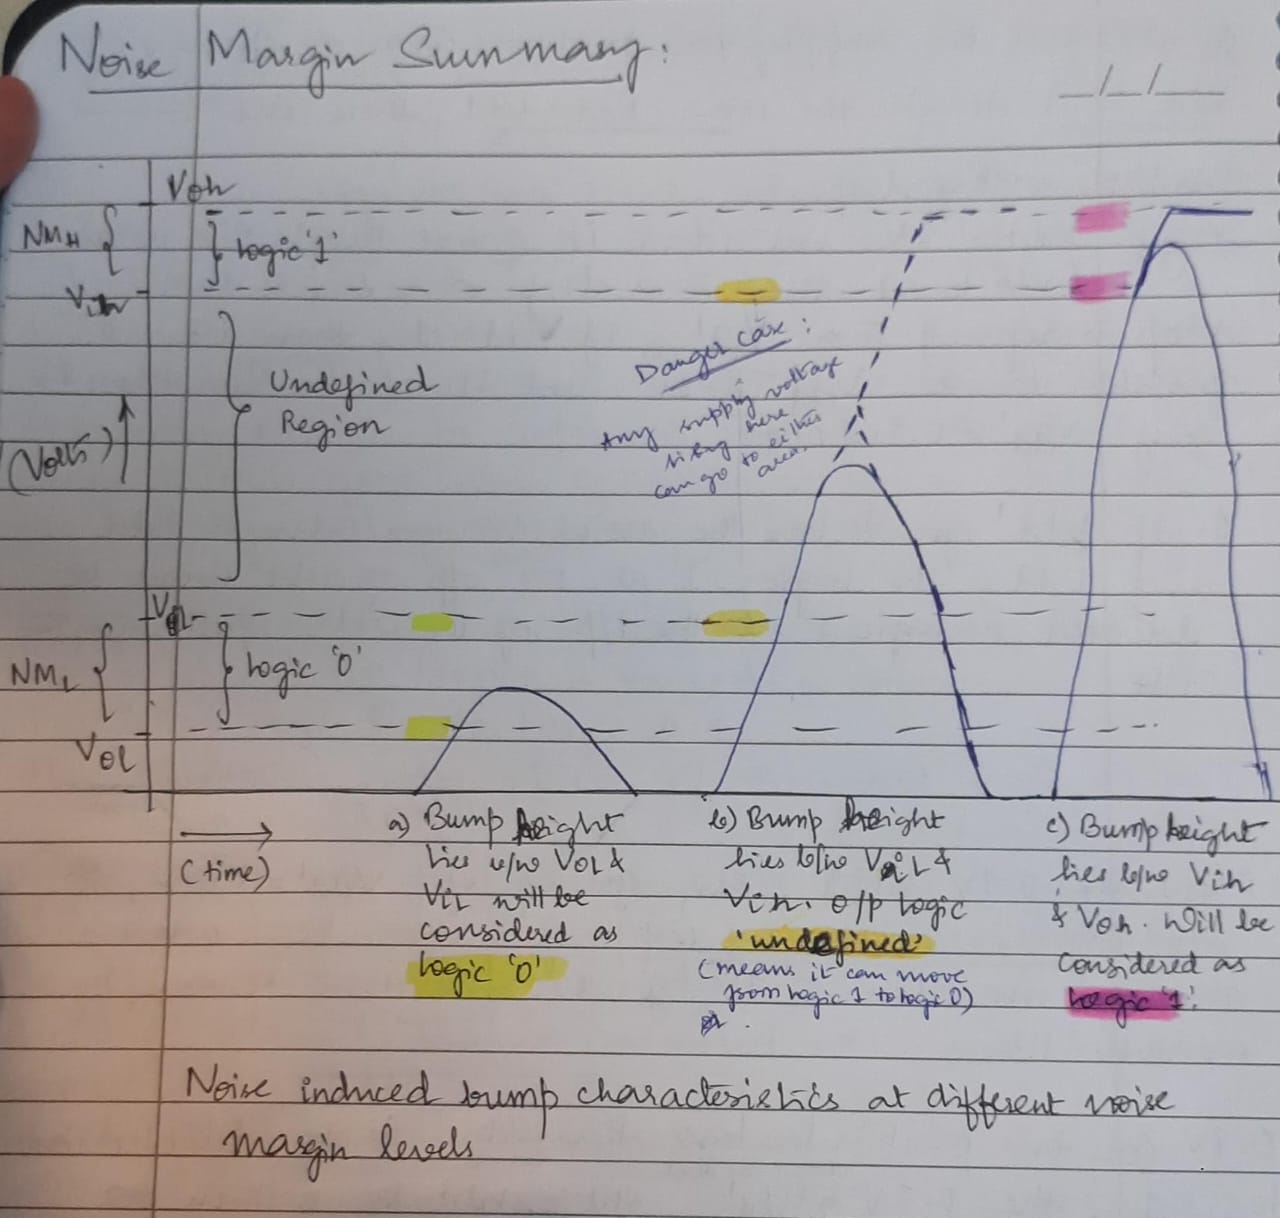 Noise Margin Summary:
_/_/__
Voh
NMH
logic '1'
Vih
Danger case:
Any supply voltage
here
can go to either
area.
Undefined
Region
(Volts)
NML
logic '0'
VOL
(time)
a) Bump height
lies b/w VOL &
VIL will be
considered as
logic '0'
b) Bump height
lies b/w ViL &
Vih. o/p logic
'undefined'
(means it can move
from logic 1 to logic 0)
c) Bump height
lies b/w Vih
& Voh. Will be
considered as
logic '1'.
Noise induced bump characteristics at different noise
margin levels